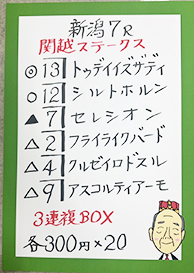 新潟7R
関越ステークス
◎13 トゥデイイズザデイ
○12 シルトホルン
▲7 セレシオン
△2 フライライクバード
△4 クルゼイロドスル
△9 アスコルティアーモ
3連複BOX
各300円×20